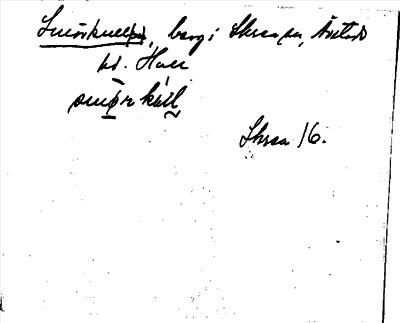 Smörkullen, berg i Skrea sn, Årstads
hd. Hall
smörkul
Skrea 16.